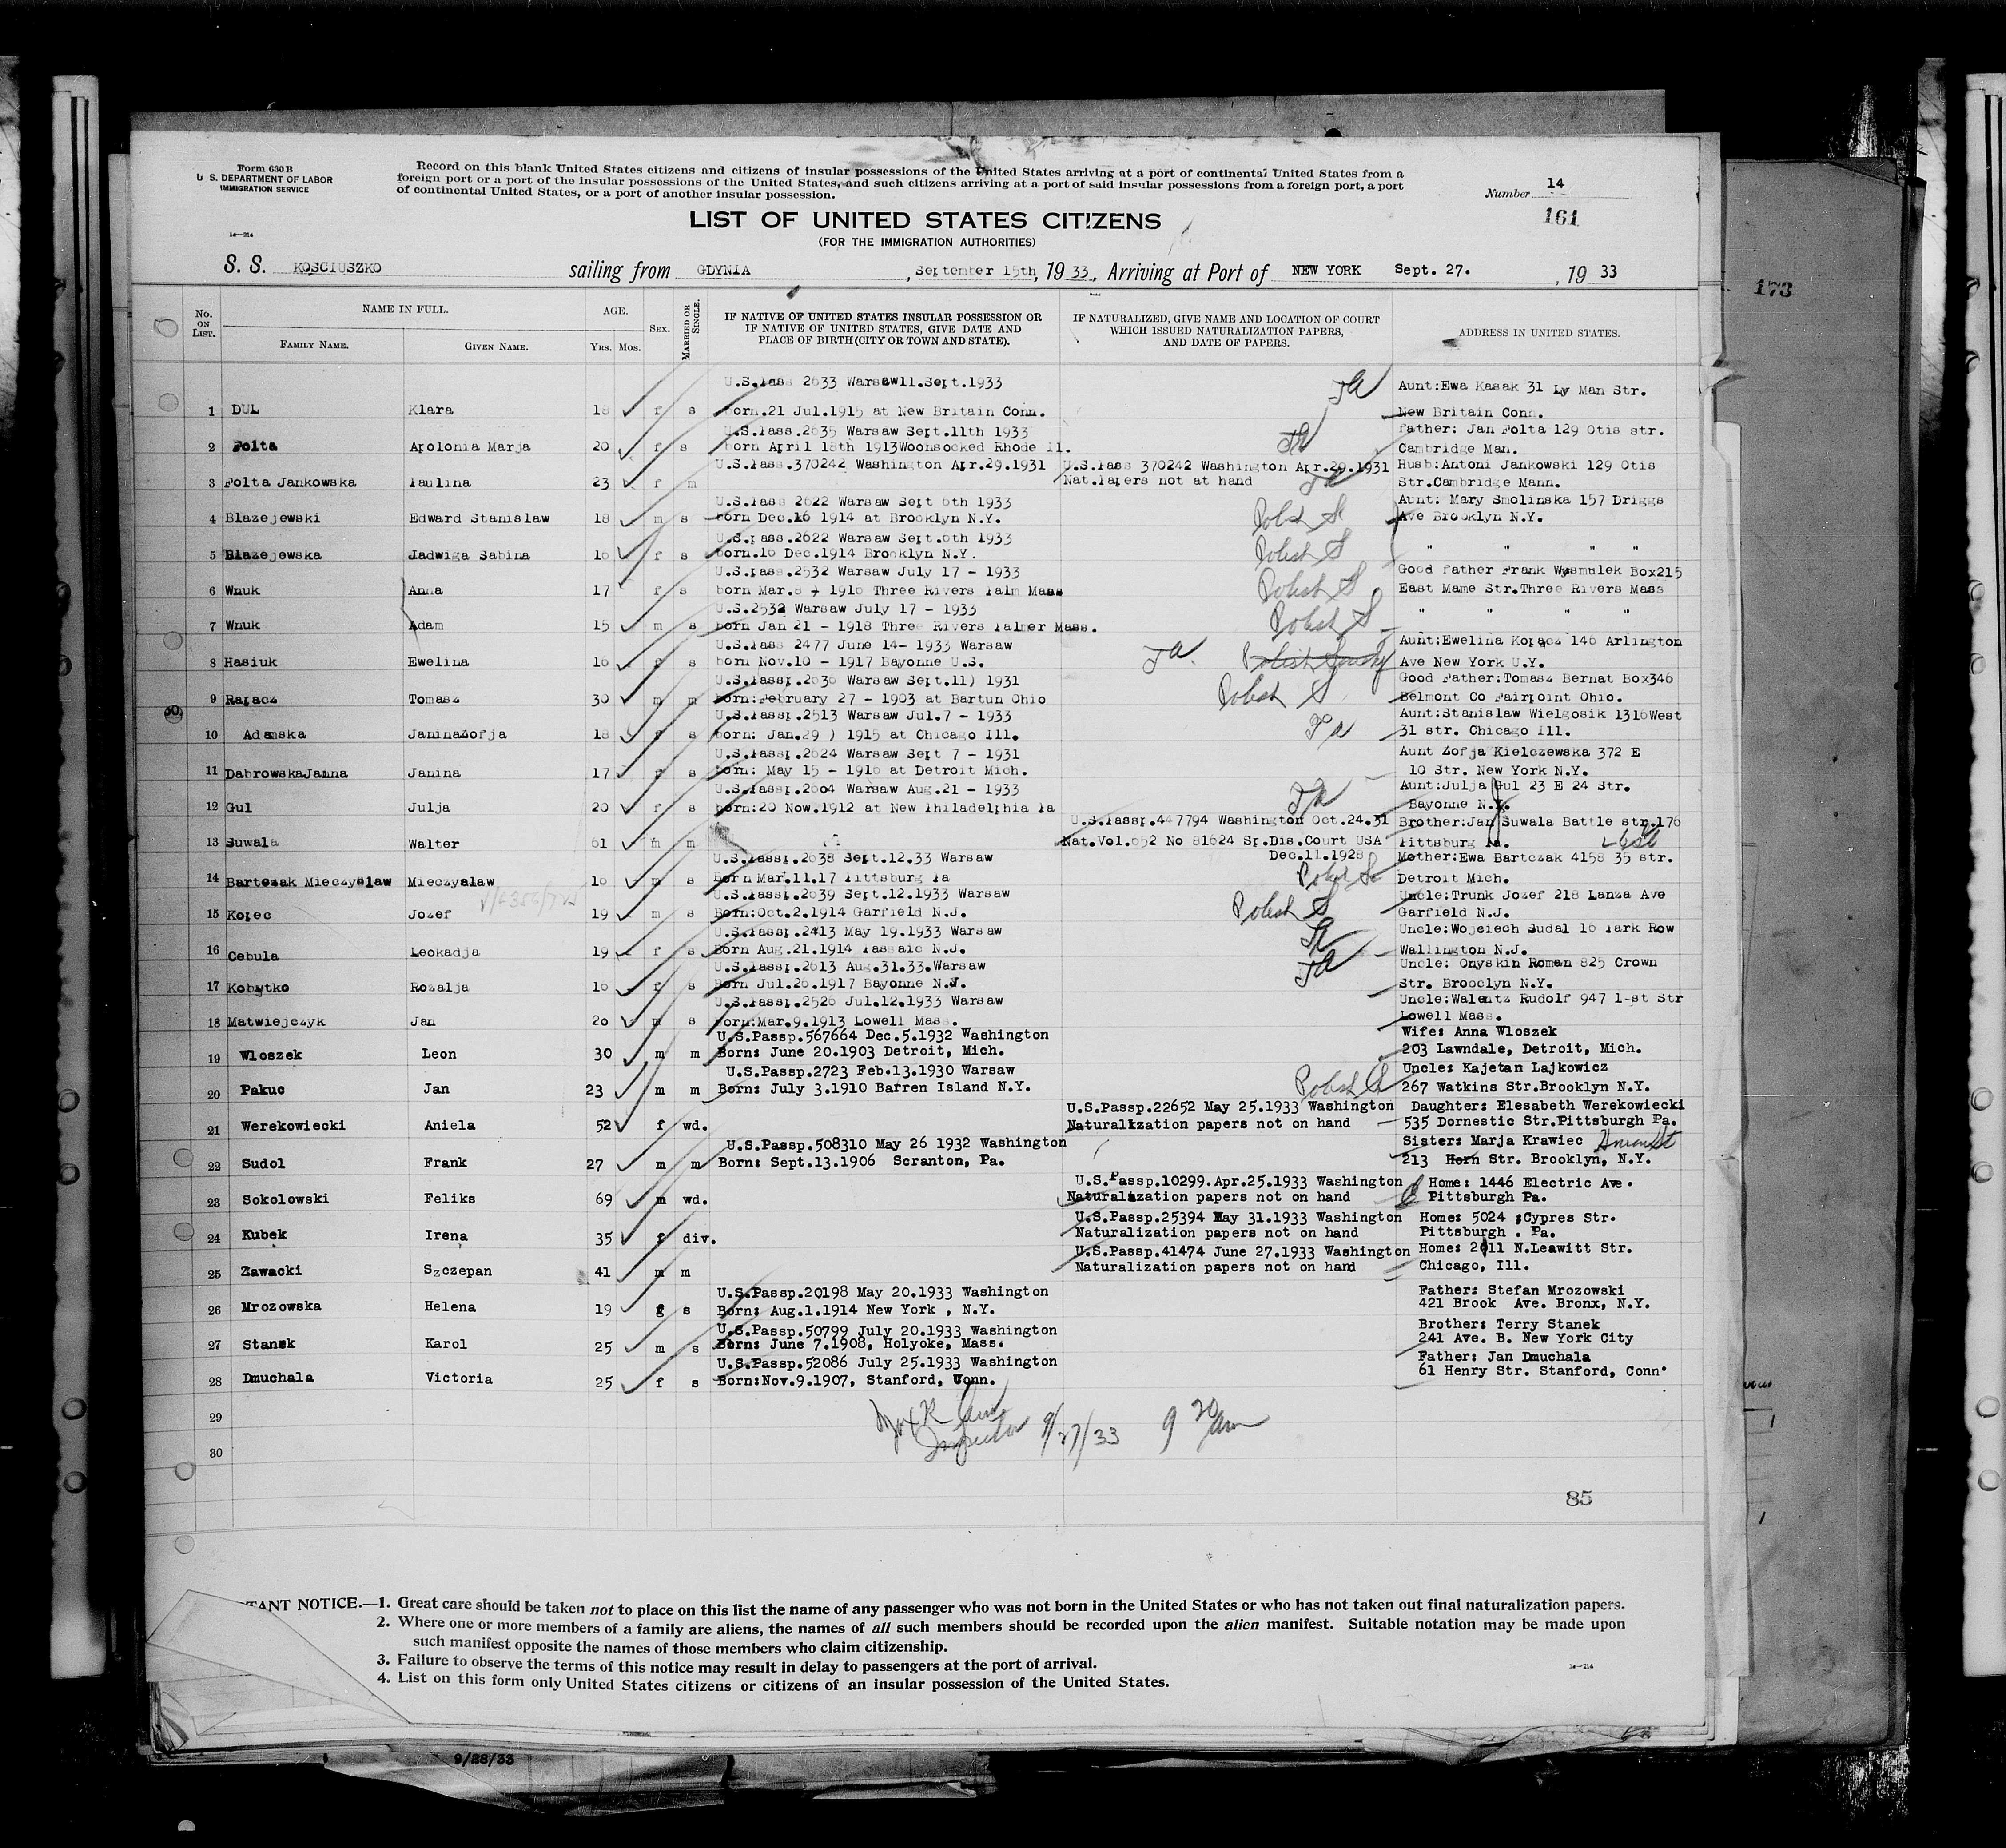 Form 630 B
U. S. DEPARTMENT OF LABOR
IMMIGRATION SERVICE
Record on this blank United States citizens and citizens of insular possessions of the United States arriving at a port of continental United States from a
foreign port or a port of the insular possessions of the United States, and such citizens arriving at a port of said insular possessions from a foreign port, a port
of continental United States, or a port of another insular possession.
Number 14
161
LIST OF UNITED STATES CITIZENS
(FOR THE IMMIGRATION AUTHORITIES)
14—214
S. S. KOSCIUSZKO sailing from GDYNIA, September 15th, 1933, Arriving at Port of NEW YORK Sept. 27., 1933
173
No. ON LIST.
NAME IN FULL.
FAMILY NAME. GIVEN NAME.
AGE.
YRS. MOS.
SEX.
MARRIED OR SINGLE.
IF NATIVE OF UNITED STATES INSULAR POSSESSION OR
IF NATIVE OF UNITED STATES, GIVE DATE AND
PLACE OF BIRTH (CITY OR TOWN AND STATE).
IF NATURALIZED, GIVE NAME AND LOCATION OF COURT
WHICH ISSUED NATURALIZATION PAPERS,
AND DATE OF PAPERS.
ADDRESS IN UNITED STATES.
U.S.Pass 2633 Warsaw11.Sept.1933 Aunt:Ewa Kasak 31 Ly Man Str.
1 DUL Klara 18 f s born.21 Jul.1915 at New Britain Conn. New Britain Conn.
U.S.Pass.2635 Warsaw Sept.11th 1933 father: Jan Polta 129 Otis str.
2 Polta Apolonia Marja 20 f s born April 18th 1913Woonsocked Rhode Il. Cambridge Man.
U.S.Pass.370242 Washington Apr.29.1931 U.S.Pass 370242 Washington Apr.29.1931 Husb:Antoni Jankowski 129 Otis
3 Polta Jankowska Paulina 23 f m Nat.Papers not at hand Str.Cambridge Mann.
U.S.Pass 2622 Warsaw Sept 6th 1933 Aunt: Mary Smolinska 157 Driggs
4 Blazejewski Edward Stanislaw 18 m s born Dec.16 1914 at Brooklyn N.Y. Polish S Ave Brooklyn N.Y.
U.S.pass.2622 Warsaw Sept.6th 1933
5 Blazejewska Jadwiga Sabina 16 f s born.16 Dec.1914 Brooklyn N.Y. Polish S " " " "
U.S.pass.2532 Warsaw July 17 - 1933 Good father Frank Wysmulek Box215
6 Wnuk Anna 17 f s born Mar.8 + 1916 Three Rivers Palm Mass Polish S East Mame Str.Three Rivers Mass
U.S.2532 Warsaw July 17 - 1933
7 Wnuk Adam 15 m s born Jan 21 - 1918 Three Rivers Palmer Mass. Polish S " " " "
U.S.Pass 2477 June 14- 1933 Warsaw Aunt:Ewelina Kopacz 146 Arlington
8 Hasiuk Ewelina 16 f s born Nov.10 - 1917 Bayonne U.S. Ave New York U.Y.
U.S.Passp.2636 Warsaw Sept.11) 1931 Good Father:Tomasz Bernat Box346
9 Rapacz Tomasz 30 m m born:February 27 - 1903 at Bartun Ohio Polish S Belmont Co Fairpoint Ohio.
U.S.Passp.2513 Warsaw Jul.7 - 1933 Aunt:Stanislaw Wielgosik 1316West
10 Adamska JaninaZofja 18 f s born: Jan.29 ) 1915 at Chicago Ill. 31 str. Chicago Ill.
U.S.Passp.2624 Warsaw Sept 7 - 1931 Aunt Zofja Kielczewska 372 E
11 DabrowskaJanina Janina 17 f s born: May 15 - 1916 at Detroit Mich. 10 Str. New York N.Y.
U.S.Passp.2604 Warsaw Aug.21 - 1933 Aunt:Julja Gul 23 E 24 Str.
12 Gul Julja 20 f s born:20 Nov.1912 at New Philadelphia Pa Bayonne N.J.
U.S.Passp.447794 Washington Oct.24.31 Brother:Jan Suwala Battle str.176
13 Suwala Walter 61 m m Nat.Vol.652 No 81624 Sp.Dis.Court USA Pittsburg Pa.
Dec.11.1928
U.S.Passp.2638 Sept.12.33 Warsaw Mother:Ewa Bartczak 4158 35 str.
14 Bartczak Mieczyslaw Mieczyslaw 16 m s Born Mar.11.17 Pittsburg Pa Detroit Mich.
U.S.Passp.2639 Sept.12.1933 Warsaw Uncle:Trunk Jozef 218 Lanza Ave
15 Kopec Jozef 19 m s Born:Oct.2.1914 Garfield N.J. Polish S Garfield N.J.
U.S.Passp.2413 May 19.1933 Warsaw Uncle:Wojciech Sudal 16 Park Row
16 Cebula Leokadja 19 f s Born Aug.21.1914 Passaic N.J. Wallington N.J.
U.S.Passp.2613 Aug.31.33.Warsaw Uncle: Onyskin Roman 825 Crown
17 Kobytko Rozalja 16 f s Born Jul.26.1917 Bayonne N.J. Str. Brooclyn N.Y.
U.S.Passp.2526 Jul.12.1933 Warsaw Uncle:Walentz Rudolf 947 1-st Str
18 Matwiejczyk Jan 20 m s born:Mar.9.1913 Lowell Mass. Lowell Mass.
U.S.Passp.567664 Dec.5.1932 Washington Wife: Anna Wloszek
19 Wloszek Leon 30 m m Born: June 20.1903 Detroit, Mich. 203 Lawndale, Detroit, Mich.
U.S.Passp.2723 Feb.13.1930 Warsaw Uncle: Kajetan Lajkowicz
20 Pakuc Jan 23 m m Born: July 3.1910 Barren Island N.Y. Polish S 267 Watkins Str.Brooklyn N.Y.
U.S.Passp.22652 May 25.1933 Washington Daughter: Elesabeth Werekowiecki
21 Werekowiecki Aniela 52 f wd. Naturalization papers not on hand 535 Dornestic Str.Pittsburgh Pa.
U.S.Passp.508310 May 26 1932 Washington Sister: Marja Krawiec
22 Sudol Frank 27 m m Born: Sept.13.1906 Scranton, Pa. 213 Horn Str. Brooklyn, N.Y.
U.S.Passp.10299.Apr.25.1933 Washington Home: 1446 Electric Ave.
23 Sokolowski Feliks 69 m wd. Naturalization papers not on hand Pittsburgh Pa.
U.S.Passp.25394 May 31.1933 Washington Home: 5024 ;Cypres Str.
24 Kubek Irena 35 f div. Naturalization papers not on hand Pittsburgh . Pa.
U.S.Passp.41474 June 27.1933 Washington Home: 2011 N.Leawitt Str.
25 Zawacki Szczepan 41 m m Naturalization papers not on hand Chicago, Ill.
U.S.Passp.20198 May 20.1933 Washington Father: Stefan Mrozowski
26 Mrozowska Helena 19 f s Born: Aug.1.1914 New York , N.Y. 421 Brook Ave. Bronx, N.Y.
U.S.Passp.50799 July 20.1933 Washington Brother: Terry Stanek
27 Stanek Karol 25 m s Born: June 7.1908, Holyoke, Mass. 241 Ave. B. New York City
U.S.Passp.52086 July 25.1933 Washington Father: Jan Dmuchala
28 Dmuchala Victoria 25 f s Born:Nov.9.1907, Stanford, Conn. 61 Henry Str. Stanford, Conn.
29
30
Inspector 9/27/33 9 20 am
85
TANT NOTICE.—1. Great care should be taken not to place on this list the name of any passenger who was not born in the United States or who has not taken out final naturalization papers.
2. Where one or more members of a family are aliens, the names of all such members should be recorded upon the alien manifest. Suitable notation may be made upon
such manifest opposite the names of those members who claim citizenship.
3. Failure to observe the terms of this notice may result in delay to passengers at the port of arrival.
4. List on this form only United States citizens or citizens of an insular possession of the United States.
14—214
9/28/33